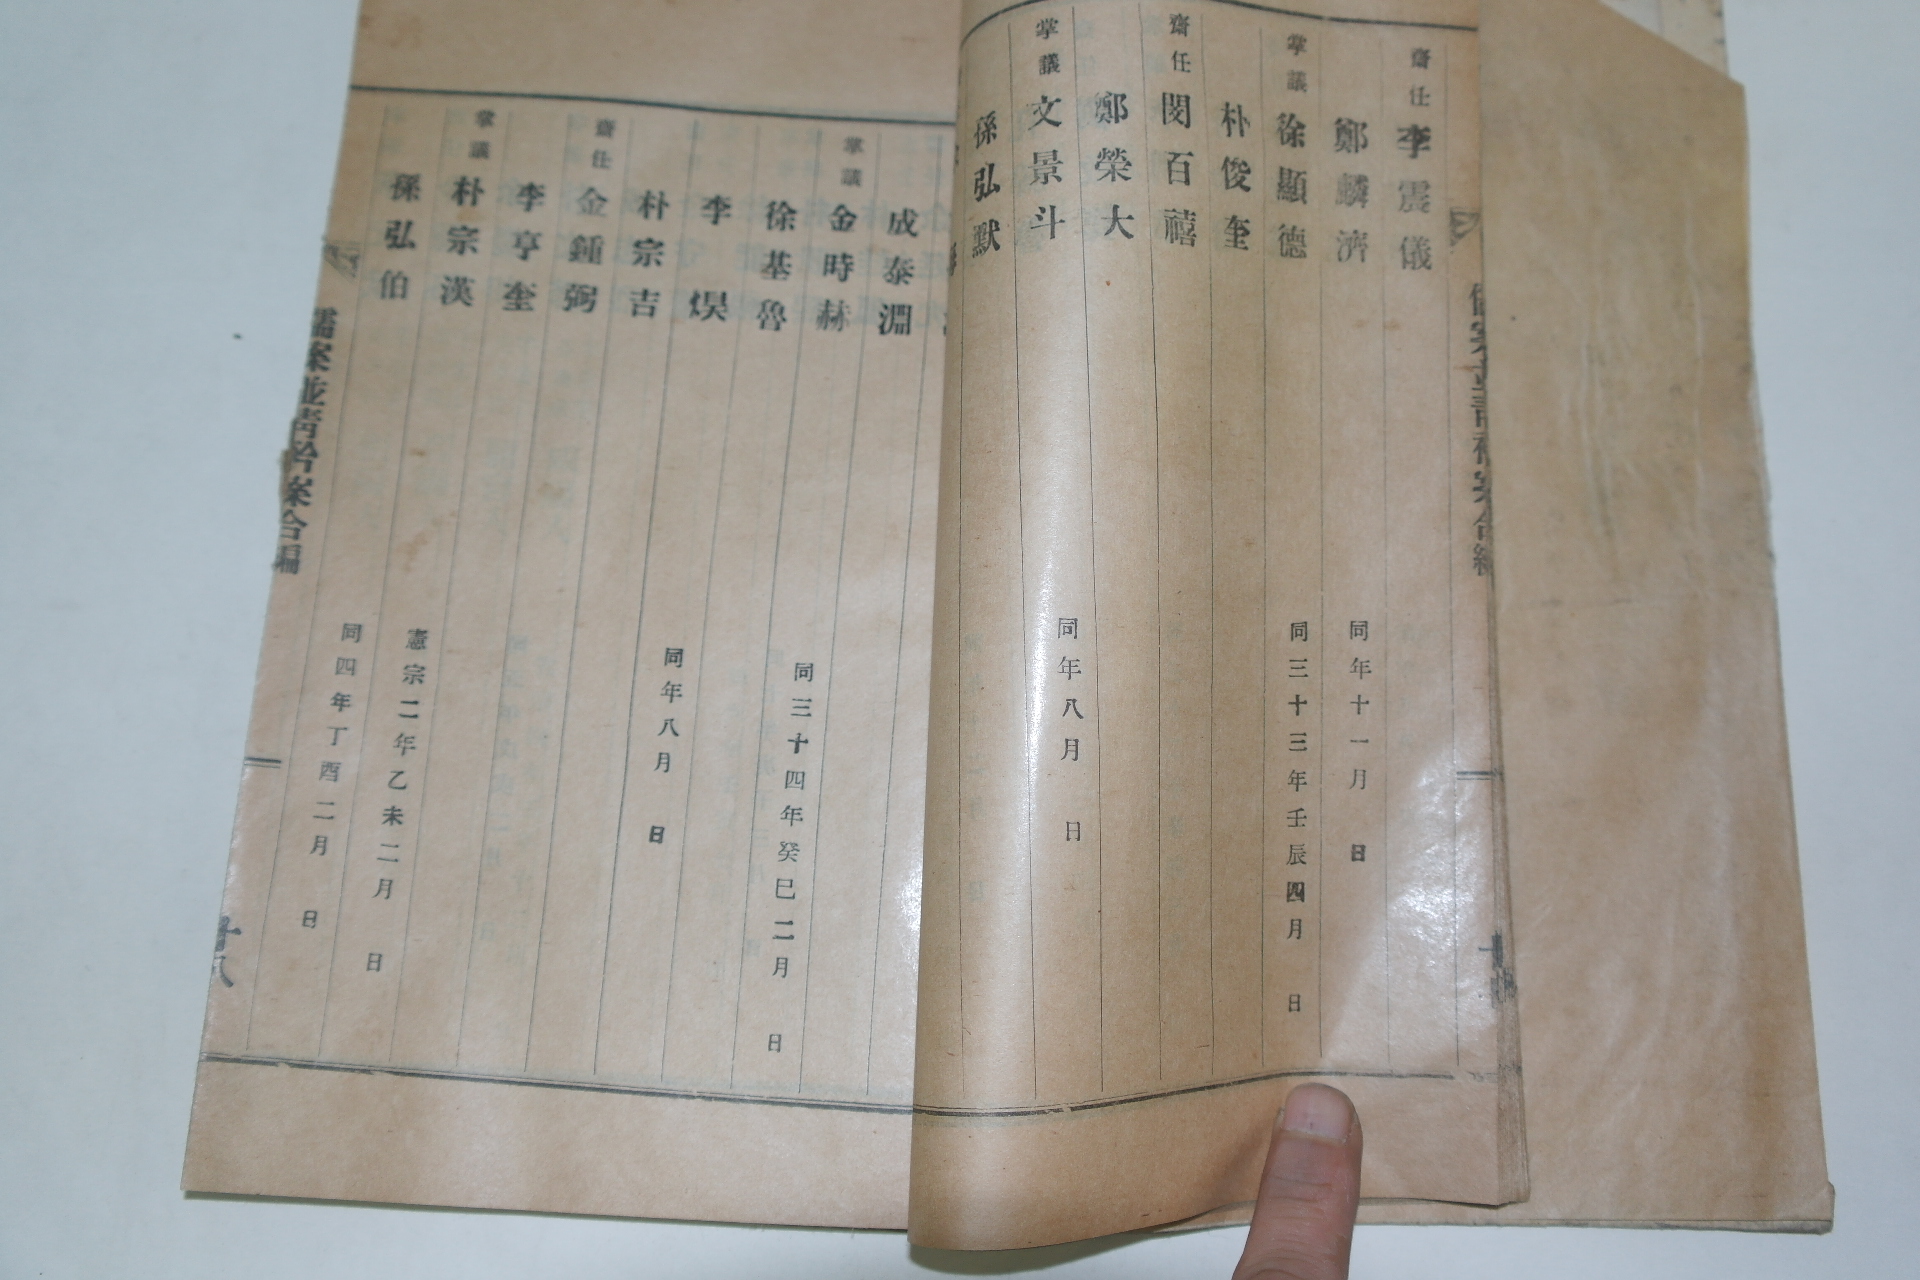 齋任 李震儀
鄭麟濟 同年十一月 日
掌議 徐顯德 同三十三年壬辰四月 日
朴俊奎
齋任 閔百禧
鄭榮大
掌議 文景斗 同年八月 日
孫弘默
成泰淵
掌議 金時赫
徐基魯 同三十四年癸巳二月 日
李 熉
朴宗吉 同年八月 日
齋任 金鍾弼
李亨奎
掌議 朴宗漢
孫弘伯 憲宗二年乙未二月 日
同四年丁酉二月 日
儒案並靑衿案合編
十八